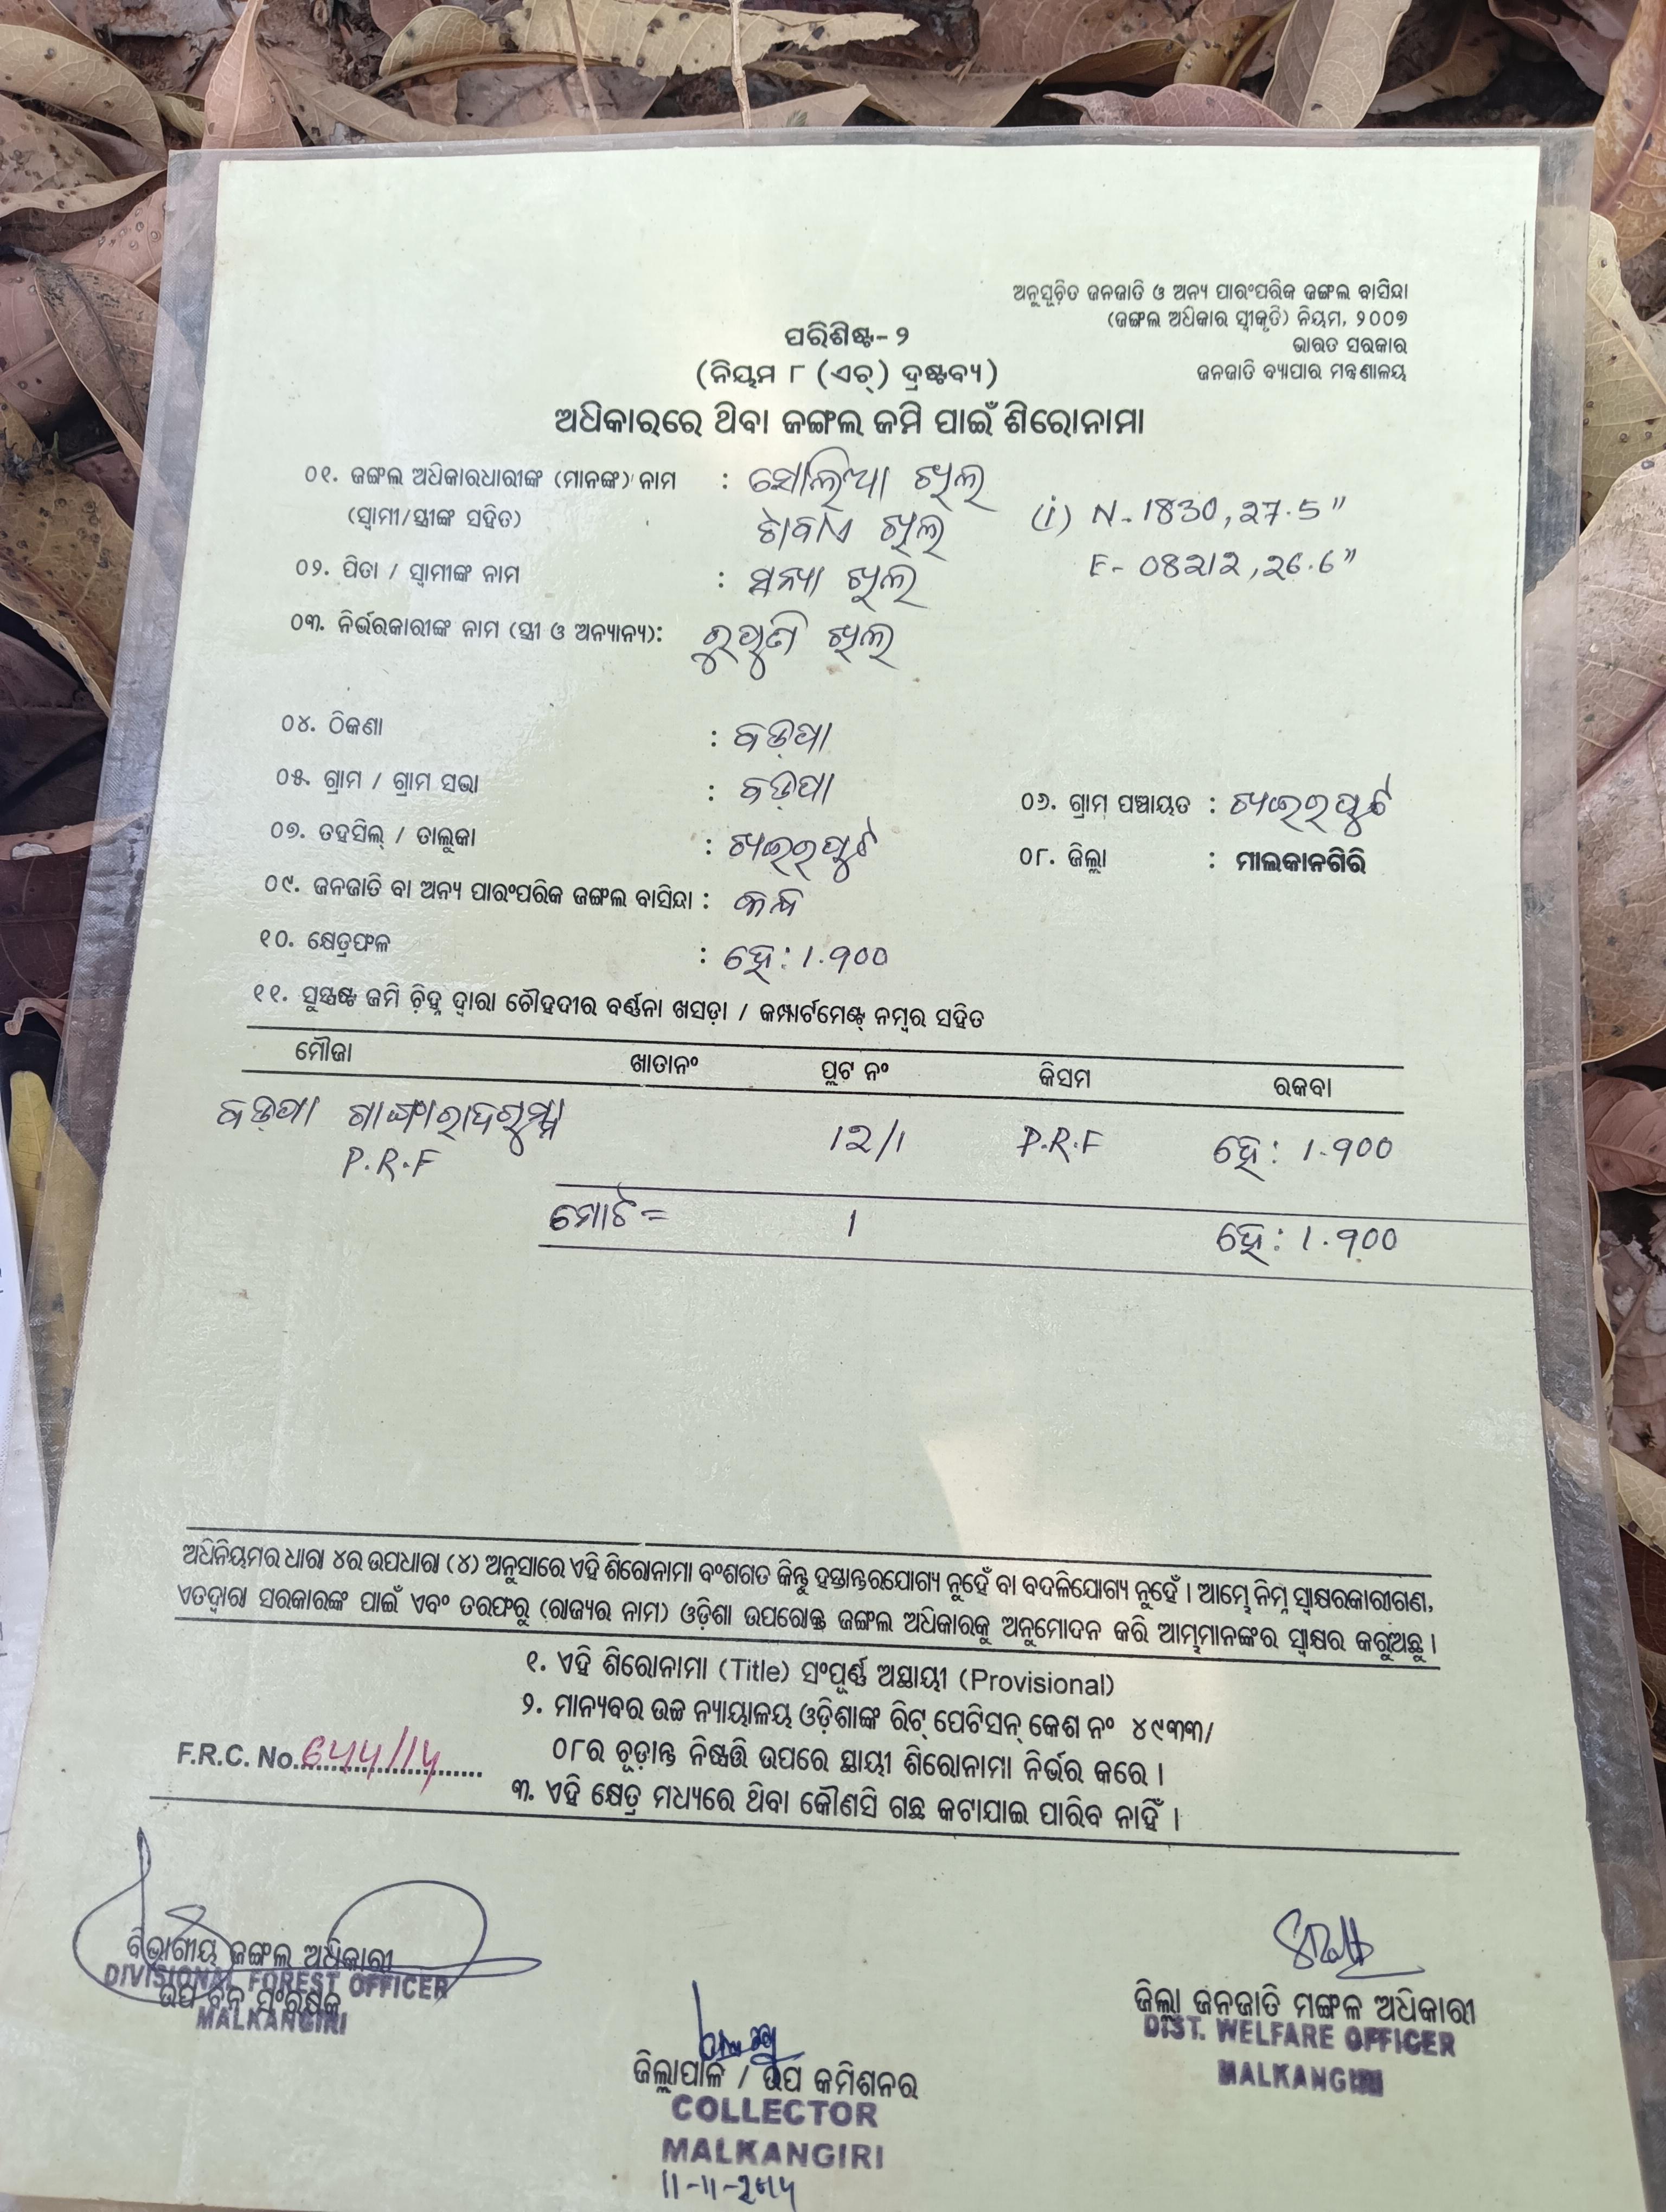 ଅନୁସୂଚିତ ଜନଜାତି ଓ ଅନ୍ୟ ପାରଂପରିକ ଜଙ୍ଗଲ ବାସିନ୍ଦା
(ଜଙ୍ଗଲ ଅଧିକାର ସ୍ୱୀକୃତି) ନିୟମ, ୨୦୦୭
ଭାରତ ସରକାର
ଜନଜାତି ବ୍ୟାପାର ମନ୍ତ୍ରଣାଳୟ
ପରିଶିଷ୍ଟ- ୨
(ନିୟମ ୮ (ଏଚ୍) ଦ୍ରଷ୍ଟବ୍ୟ)
ଅଧିକାରରେ ଥିବା ଜଙ୍ଗଲ ଜମି ପାଇଁ ଶିରୋନାମା
୦୧. ଜଙ୍ଗଲ ଅଧିକାରଧାରୀଙ୍କ (ମାନଙ୍କ) ନାମ : ସୋଲିଆ ଖିଲ
(ସ୍ୱାମୀ/ସ୍ତ୍ରୀଙ୍କ ସହିତ) ଖିଲ (i) N-1830,27.5"
E-08212,26.6"
୦୨. ପିତା / ସ୍ୱାମୀଙ୍କ ନାମ : ଖିଲ
୦୩. ନିର୍ଭରକାରୀଙ୍କ ନାମ (ସ୍ତ୍ରୀ ଓ ଅନ୍ୟାନ୍ୟ): ଖିଲ
୦୪. ଠିକଣା : ବଡ଼ପା
୦୫. ଗ୍ରାମ / ଗ୍ରାମ ସଭା : ବଡ଼ପା ୦୬. ଗ୍ରାମ ପଞ୍ଚାୟତ : ଖଇରପୁଟ
୦୭. ତହସିଲ୍ / ତାଲୁକା : ଖଇରପୁଟ ୦୮. ଜିଲ୍ଲା : ମାଲକାନଗିରି
୦୯. ଜନଜାତି ବା ଅନ୍ୟ ପାରଂପରିକ ଜଙ୍ଗଲ ବାସିନ୍ଦା : କନ୍ଧ
୧୦. କ୍ଷେତ୍ରଫଳ : ହେ: 1.900
୧୧. ସୁସ୍ପଷ୍ଟ ଜମି ଚିହ୍ନ ଦ୍ୱାରା ଚୌହଦୀର ବର୍ଣ୍ଣନା ଖସଡ଼ା / କମ୍ପାର୍ଟମେଣ୍ଟ ନମ୍ବର ସହିତ
ମୌଜା ଖାତାନଂ ପ୍ଲଟ ନଂ କିସମ ରକବା
ବଡ଼ପା 12/1 P.R.F ହେ: 1.900
P.R.F
ମୋଟ = 1 ହେ: 1.900
ଅଧିନିୟମର ଧାରା ୪ର ଉପଧାରା (୪) ଅନୁସାରେ ଏହି ଶିରୋନାମା ବଂଶଗତ କିନ୍ତୁ ହସ୍ତାନ୍ତରଯୋଗ୍ୟ ନୁହେଁ ବା ବଦଳିଯୋଗ୍ୟ ନୁହେଁ । ଆମ୍ଭେ ନିମ୍ନ ସ୍ୱାକ୍ଷରକାରୀଗଣ,
ଏତଦ୍ୱାରା ସରକାରଙ୍କ ପାଇଁ ଏବଂ ତରଫରୁ (ରାଜ୍ୟର ନାମ) ଓଡ଼ିଶା ଉପରୋକ୍ତ ଜଙ୍ଗଲ ଅଧିକାରକୁ ଅନୁମୋଦନ କରି ଆମ୍ଭମାନଙ୍କର ସ୍ୱାକ୍ଷର କରୁଅଛୁ ।
୧. ଏହି ଶିରୋନାମା (Title) ସଂପୂର୍ଣ୍ଣ ଅସ୍ଥାୟୀ (Provisional)
୨. ମାନ୍ୟବର ଉଚ୍ଚ ନ୍ୟାୟାଳୟ ଓଡ଼ିଶାଙ୍କ ରିଟ୍ ପେଟିସନ୍ କେଶ ନଂ ୪୯୩୩/
୦୮ର ଚୂଡ଼ାନ୍ତ ନିଷ୍ପତ୍ତି ଉପରେ ସ୍ଥାୟୀ ଶିରୋନାମା ନିର୍ଭର କରେ ।
F.R.C. No. 644/14
୩. ଏହି କ୍ଷେତ୍ର ମଧ୍ୟରେ ଥିବା କୌଣସି ଗଛ କଟାଯାଇ ପାରିବ ନାହିଁ ।
ବିଭାଗୀୟ ଜଙ୍ଗଲ ଅଧିକାରୀ
DIVISIONAL FOREST OFFICER
ଉପ ବନ ସଂରକ୍ଷକ
MALKANGIRI
ଜିଲ୍ଲା ଜନଜାତି ମଙ୍ଗଳ ଅଧିକାରୀ
DIST. WELFARE OFFICER
MALKANGIRI
ଜିଲ୍ଲାପାଳ / ଉପ କମିଶନର
COLLECTOR
MALKANGIRI